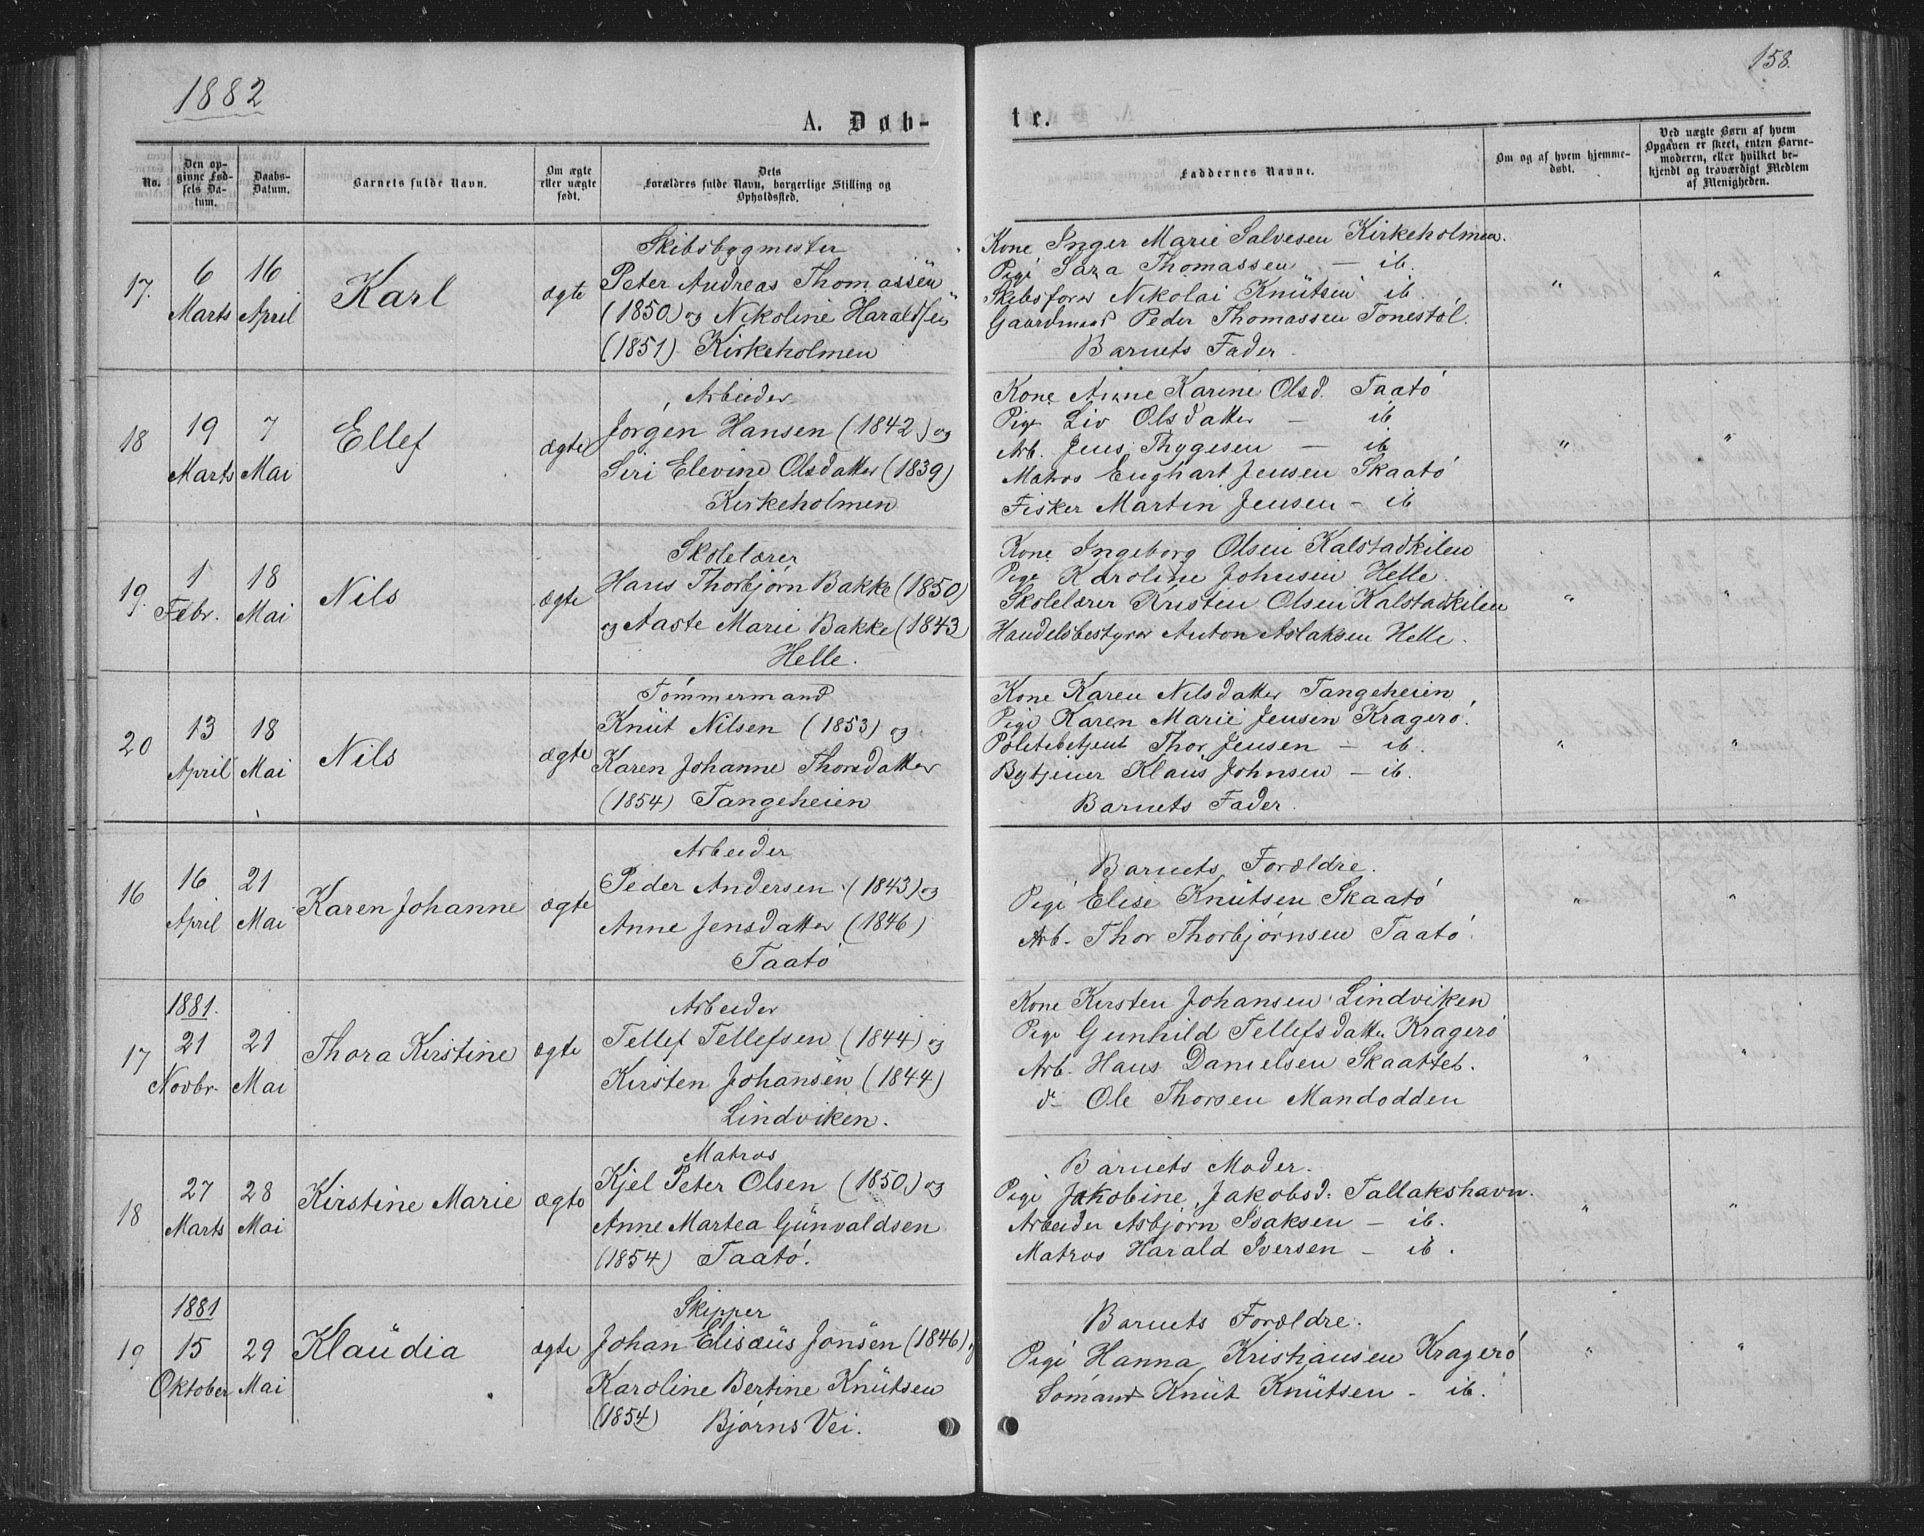 1882
158.
A. Døb-
te.
No.
Den op-
givne Fød-
sels Da-
tum.
Daabs-
Datum.
Barnets fulde Navn.
Om ægte
eller uægte
født.
Dets
Forældres fulde Navn, borgerlige Stilling og
Opholdssted.
Faddernes Navne.
Om og af hvem hjemme-
døbt.
Ved uægte Børn af hvem
Opgaven er skeet, enten Barne-
moderen, eller hvilket be-
kjendt og troværdigt Medlem
af Menigheden.
17.
6
Marts
16
April
Karl
ægte
Skibsbygmester
Peter Andreas Thomassen
(1850) og Nikoline Haraldsen
(1851) Kirkeholmen
Kone Inger Marie Salvesen Kirkeholmen.
Pige Sara Thomassen — ib.
Skibsfører Nikolai Knutsen ib.
Gaardmand Peder Thomassen Tonestøl.
Barnets Fader.
"
"
18
19
Marts
7
Mai
Ellef
ægte
Arbeider
Jørgen Hansen (1842) og
Siri Elevine Olsdatter (1839)
Kirkeholmen
Kone Anne Karine Olsd. Taatø
Pige Liv Olsdatter — ib
Arb. Jens Thygesen — ib
Matros Enghart Jensen Skaatø
Fisker Martin Jensen — ib
"
"
19.
1
Febr.
18
Mai
Nils
ægte
Skolelærer
Hans Thorbjørn Bakke (1850)
og Aaste Marie Bakke (1843
Helle.
Kone Ingeborg Olsen Kalstadkilen
Pige Karoline Johnsen Helle.
Skolelærer Kristen Olsen Kalstadkilen
Handelsbestyrer Anton Aslaksen Helle.
"
"
20
13
April
18
Mai
Nils
ægte
Tømmermand
Knut Nilsen (1853) og
Karen Johanne Thorsdatter
(1854) Tangeheien
Kone Karen Nilsdatter Tangeheien
Pige Karen Marie Jensen Kragerø.
Politibetjent Thor Jensen — ib.
Bytjener Klaus Johnsen — ib.
Barnets Fader.
"
"
16
16
April
21
Mai
Karen Johanne
ægte
Arbeider
Peder Andersen (1843) og
Anne Jensdatter (1846)
Taatø
Barnets Forældre.
Pige Elise Knutsen Skaatø
Arb. Thor Thorbjørnsen Taatø.
"
"
17
1881.
21
Novbr.
21
Mai
Thora Kirstine
ægte
Arbeider
Tellef Tellefsen (1844) og
Kirsten Johansen (1844)
Lindviken.
Kone Kirsten Johansen Lindviken
Pige Gunhild Tellefsdatter Kragerø
Arb. Hans Danielsen Skaattet.
d— Ole Thorsen Mandodden
"
"
18
27
Marts
28
Mai
Kirstine Marie
ægte
Matros
Kjel Peter Olsen (1850) og
Anne Martea Gunvaldsen
(1854) Taatø.
Barnets Moder.
Pige Jakobine Jakobsd: Tallakshavn.
Arbeider Asbjørn Isaksen — ib.
Matros Harald Iversen — ib.
"
"
19
1881
15
Oktober
29
Mai
Klaudia
ægte
Skipper
Johan Elisæus Jonsen (1846) og
Karoline Bertine Knutsen
(1854) Bjørns Vei.
Barnets Forældre.
Pige Hanna Kristiansen Kragerø
Sømand Knut Knutsen — ib.
"
"